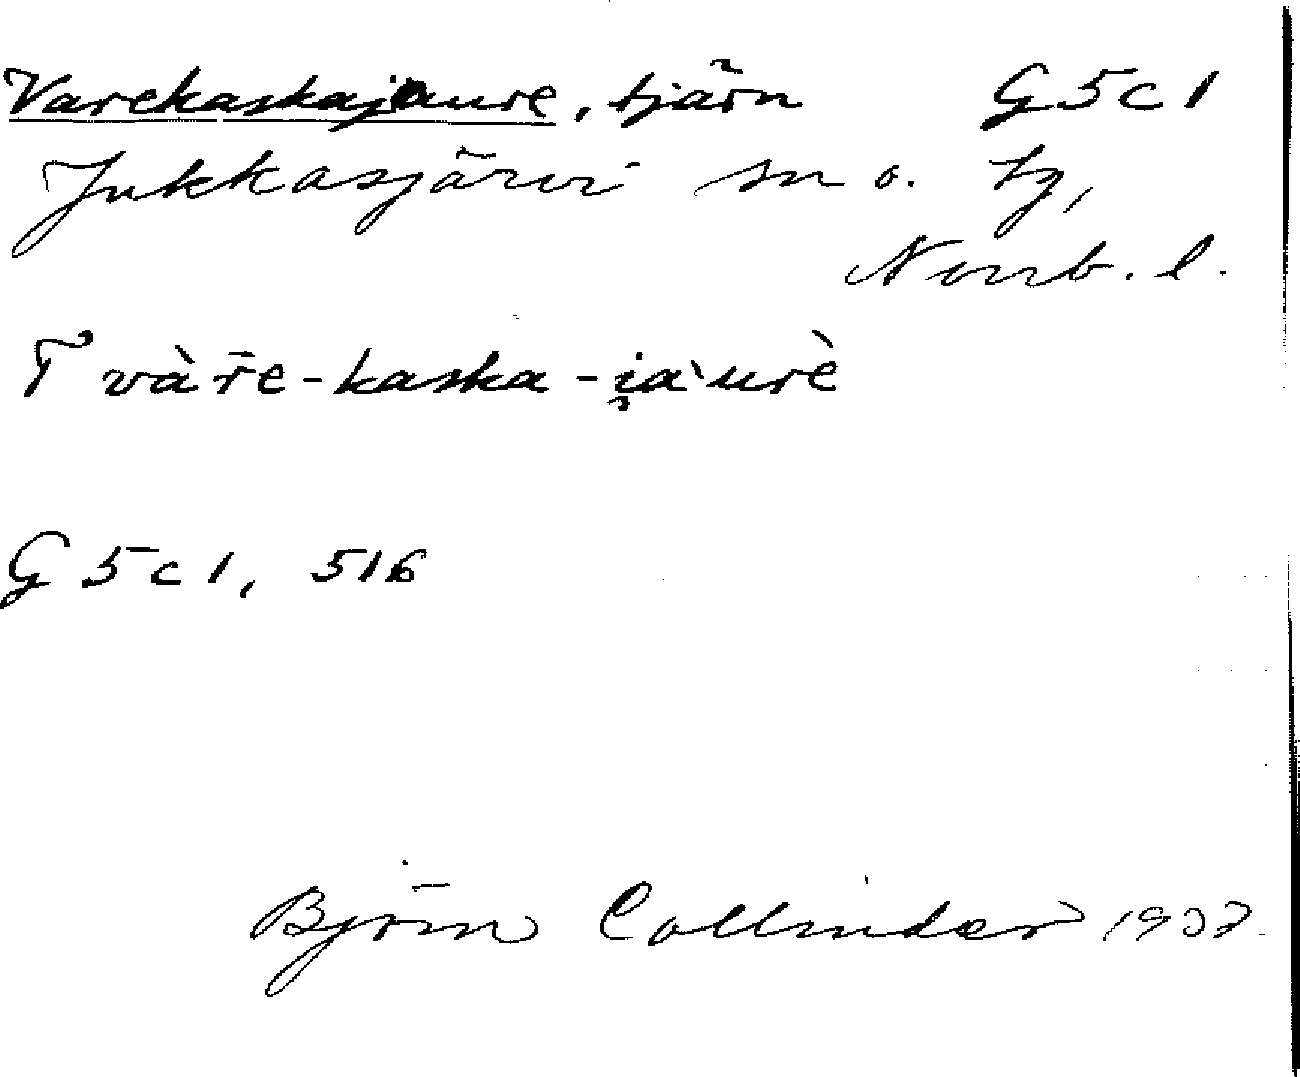 Varekaskajaure, tjärn G5c1
Jukkasjärvi sn o. tg,
Norrb. l.
T vàr̄e-kaska-i̯a`urè
G5c1, 516
Björn Collinder 1937